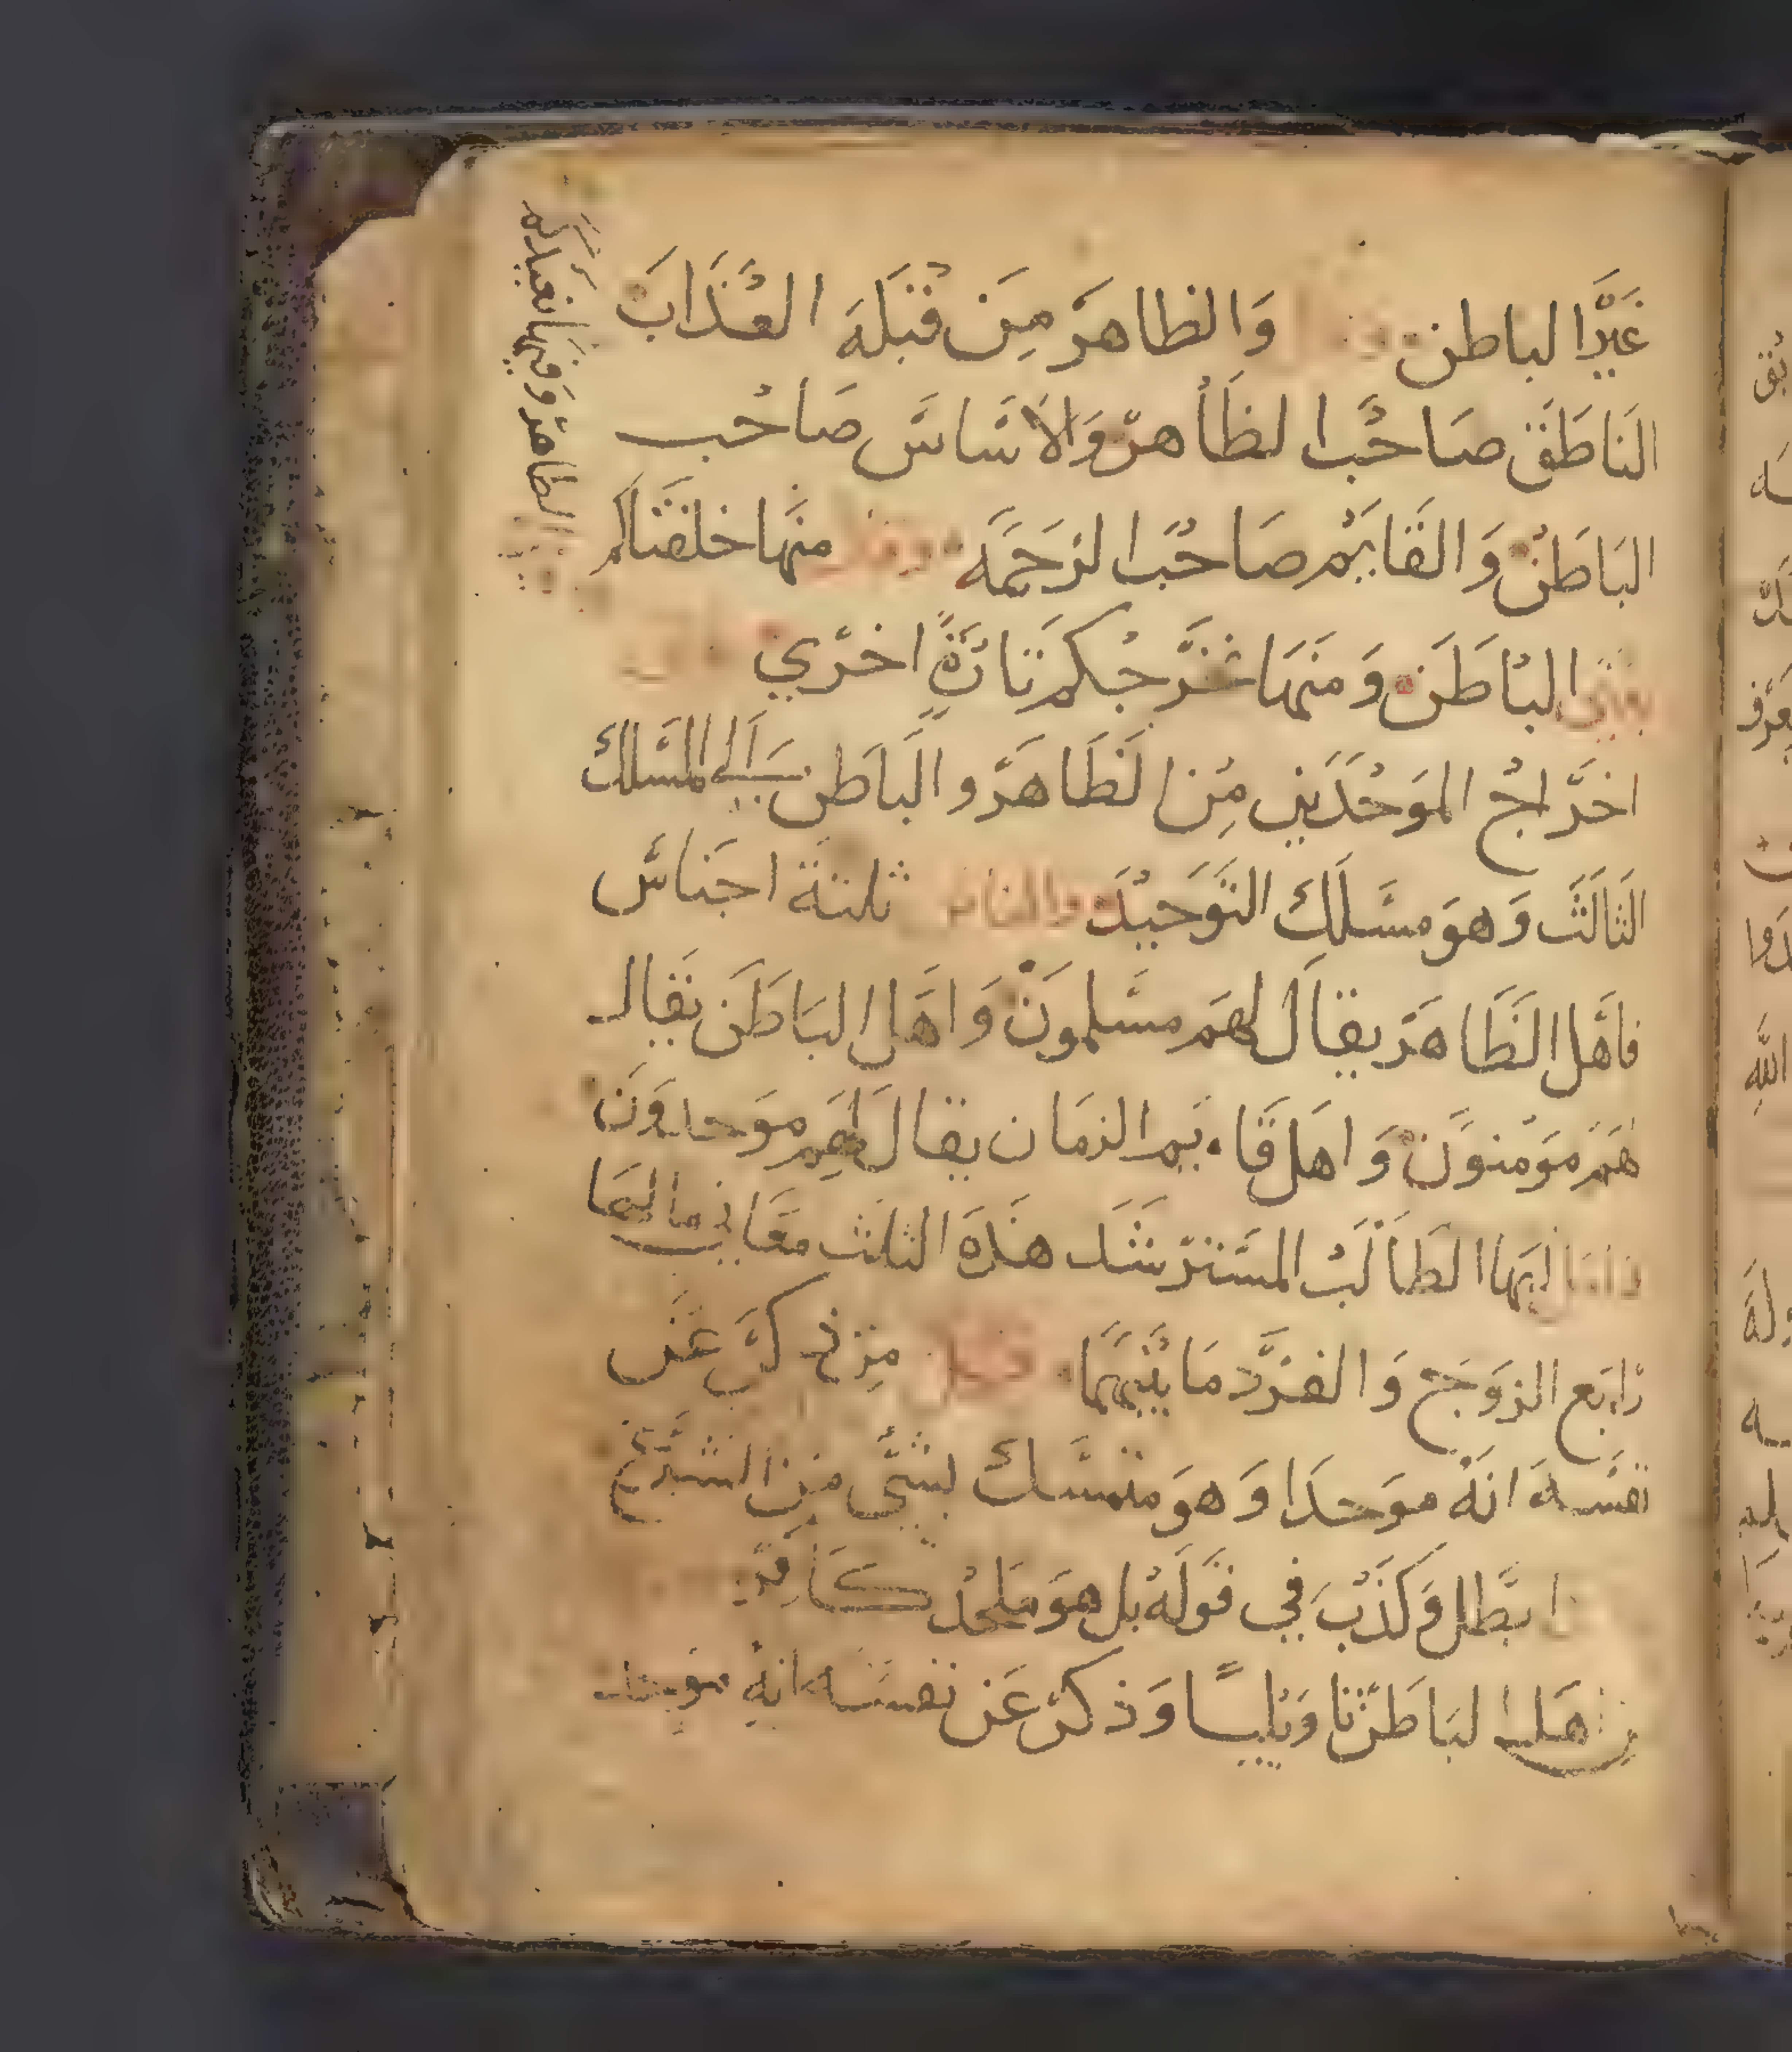 غير الباطن وقال والظاهر من قبله العذاب
الناطق صاحب الظاهر والاساس صاحب
الباطن والقايم صاحب الرحمه وقال منها خلقناكم
يعني الباطن ومنها نخرجكم تارة اخري
اخراج الموحدين من الظاهر والباطن الي المسلك
الثالث وهو مسلك التوحيد والناس ثلثة اجناس
فاهل الظاهر يقال لهم مسلمون واهل الباطن يقال
لهم مومنون واهل قايم الزمان يقال لهم موحدون
ايها الطالب المسترشد هذه الثلث معاني ما لها
رابع الزوج والفرد ما بينهما فكل من ذكر عن
نفسه انه موحدا وهو متمسك بشي من الشرع
ابطل وكذب في قوله بل هو ملحد كافر
من اهل الباطن تاويليا وذكر عن نفسه انه موحد
الظاهر وفيها نعيدكم